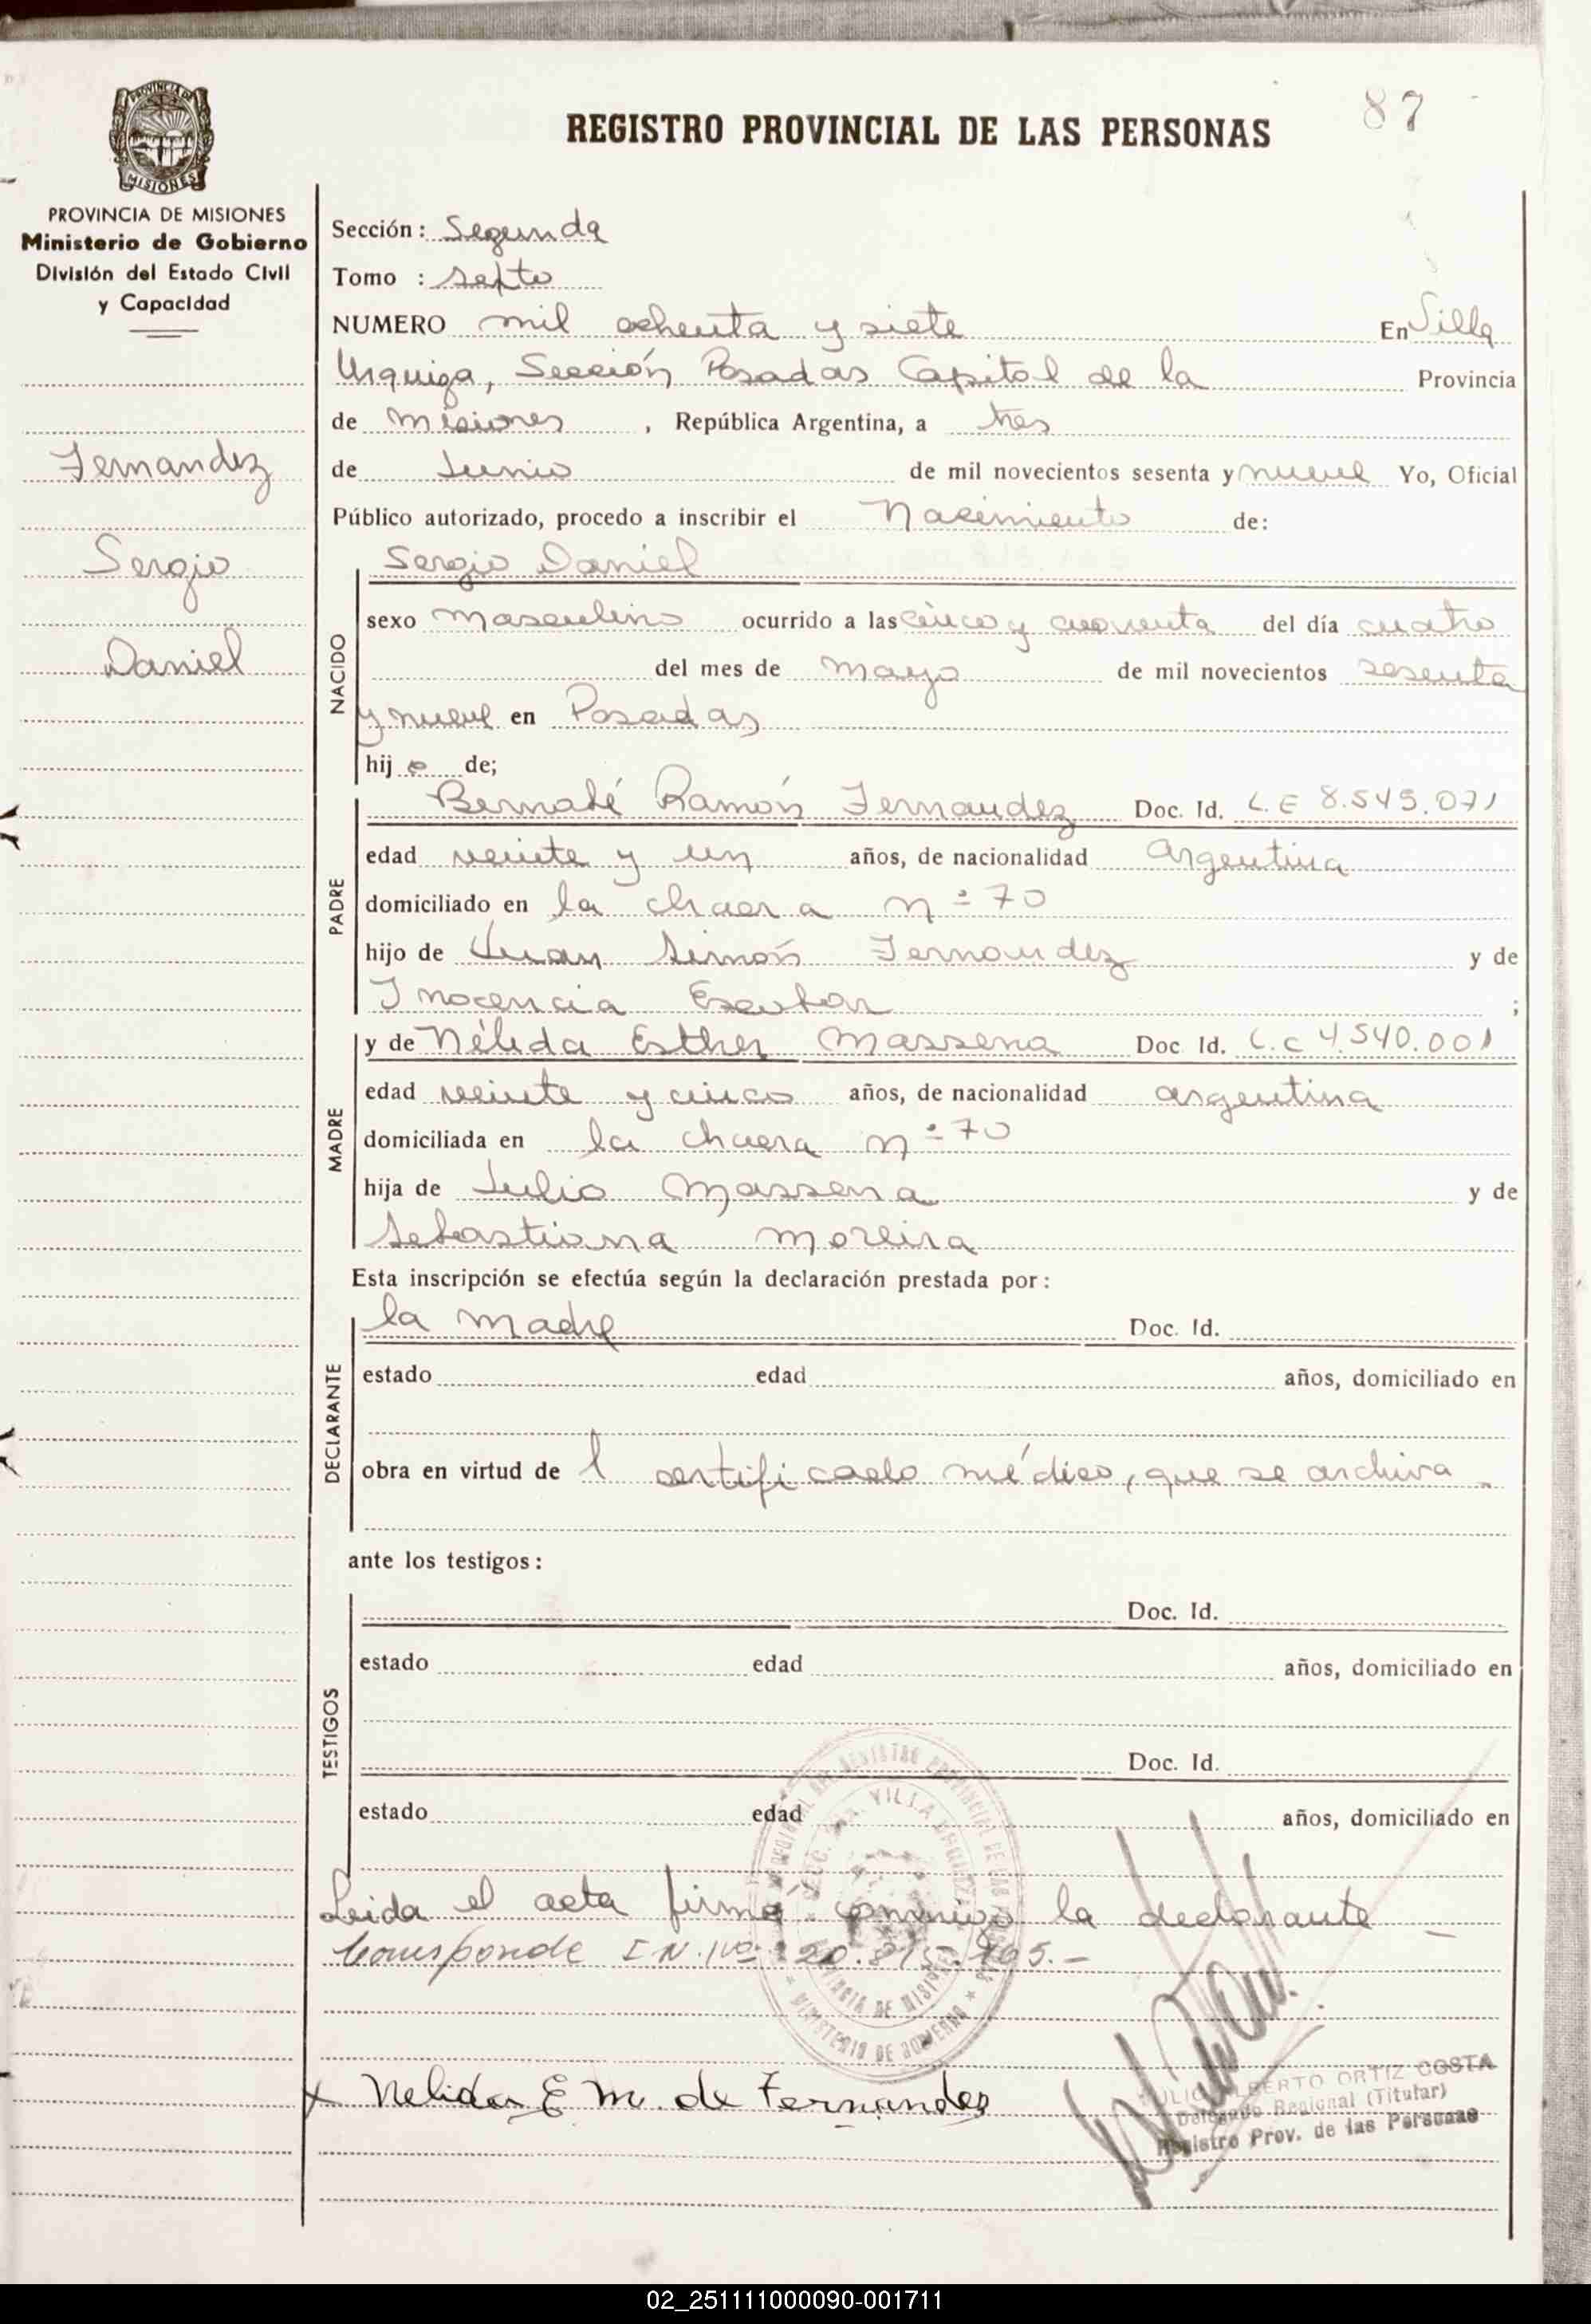 87
PROVINCIA DE
MISIONES
REGISTRO PROVINCIAL DE LAS PERSONAS
PROVINCIA DE MISIONES
Ministerio de Gobierno
División del Estado Civil
y Capacidad
Fernandez
Sergio
Daniel
Sección: Segunda
Tomo : septo
NUMERO mil ochenta y siete En Villa
Urquiza, Sección Posadas Capital de la Provincia
de Misiones, República Argentina, a tres
de Junio de mil novecientos sesenta y nueve Yo, Oficial
Público autorizado, procedo a inscribir el Nacimiento de:
NACIDO
Sergio Daniel
sexo masculino ocurrido a las cinco y cuarenta del día cuatro
del mes de mayo de mil novecientos sesenta
y nueve en Posadas
hijo de;
PADRE
Bernabé Ramón Fernandez Doc. Id. L.E 8.545.071
edad veinte y un años, de nacionalidad argentina
domiciliado en la chacra nº 70
hijo de Juan Simón Fernandez y de
Inocencia Escobar ;
MADRE
y de Nélida Esther Massena Doc. Id. L.C 4.540.001
edad veinte y cinco años, de nacionalidad argentina
domiciliada en la chacra nº 70
hija de Julio Massena y de
Sebastiana Moreira
Esta inscripción se efectúa según la declaración prestada por:
DECLARANTE
la madre Doc. Id.
estado edad años, domiciliado en
obra en virtud de l certificado médico, que se archiva
ante los testigos:
TESTIGOS
Doc. Id.
estado edad años, domiciliado en
Doc. Id.
estado edad años, domiciliado en
Leida el acta firmó conmigo la declarante
Corresponde I.N. Nº 20.815.
Nelida E M. de Fernandez
JULIO ALBERTO ORTIZ COSTA
Delegado Regional (Titular)
Registro Prov. de las Personas
02_251111000090-001711